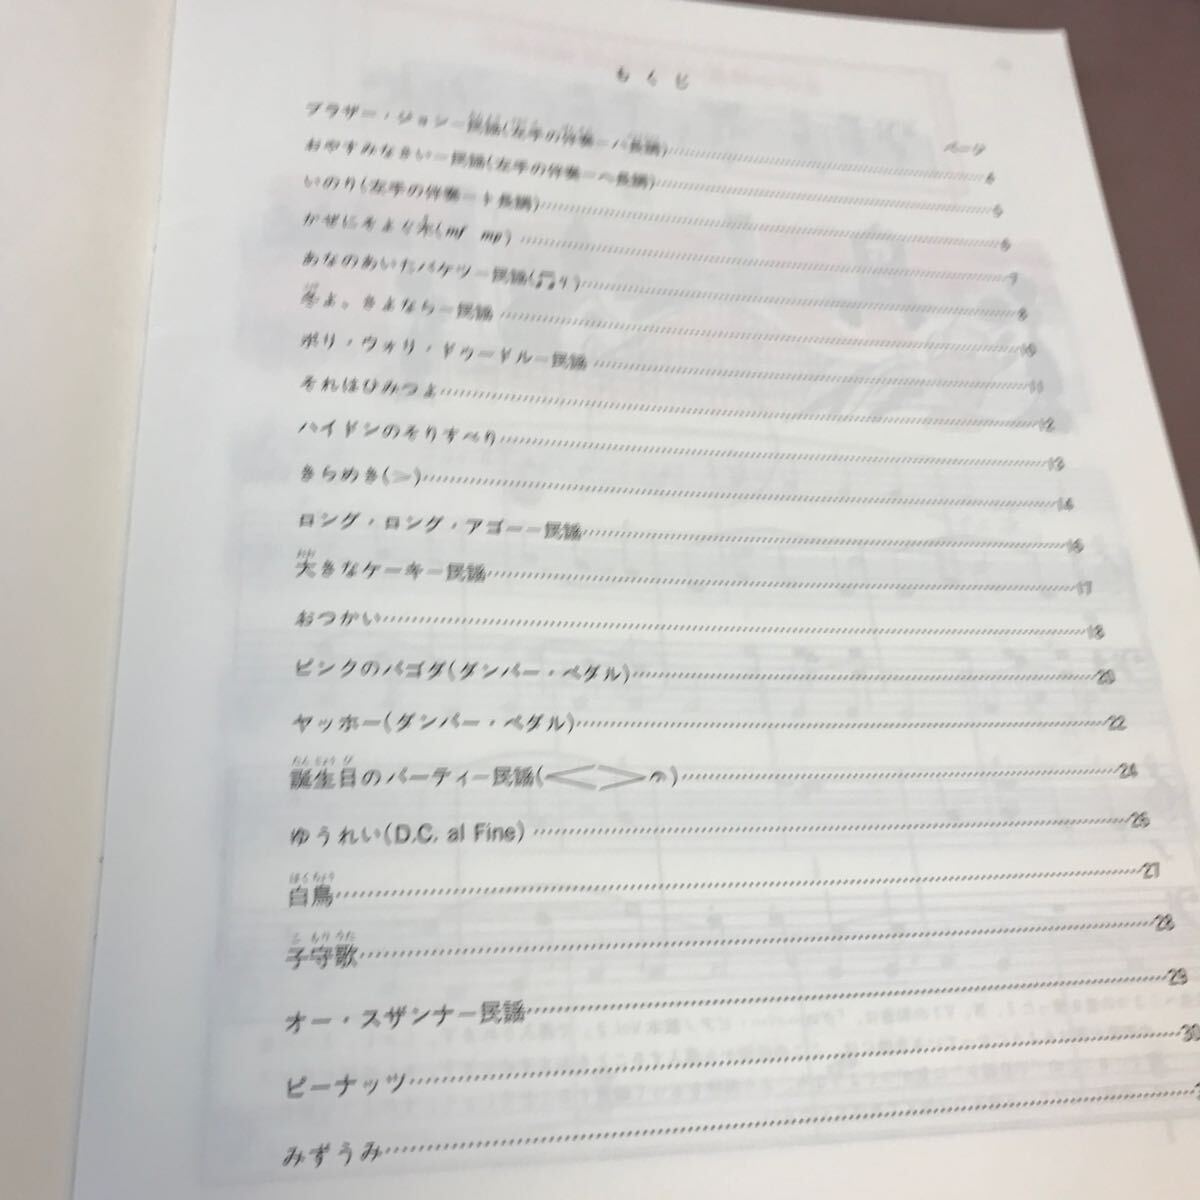 もくじ
ページ
ブラザー・ジョン－民謡(左手の伴奏－ハ長調)……4
おやすみなさい－民謡(左手の伴奏－ヘ長調)……5
いのり(左手の伴奏－ト長調)……6
かぜにそよぐ木(mf mp)……7
あなのあいたバケツ－民謡(♫♩)……8
冬よ。さよなら－民謡……10
ポリ・ウォリ・ドゥードル－民謡……11
それはひみつよ……12
ハイドンのそりすべり……13
きらめき(＞)……14
ロング・ロング・アゴー－民謡……16
大きなケーキ－民謡……17
おつかい……18
ピンクのパゴダ(ダンパー・ペダル)……20
ヤッホー(ダンパー・ペダル)……22
誕生日のパーティ－民謡(＜ ＞ 𝄐)……24
ゆうれい(D.C. al Fine)……26
白鳥……27
子守歌……28
オー・スザンナ－民謡……29
ピーナッツ……30
みずうみ……